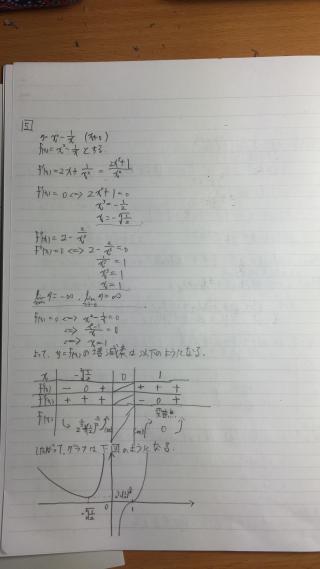 5
y = x² - 1/x (x≠0)
f(x) = x² - 1/x とする
f'(x) = 2x + 1/x² = (2x³+1)/x²
f'(x) = 0 ⇔ 2x³+1=0
x³ = -1/2
x = -∛(1/2)
f''(x) = 2 - 2/x³
f''(x) = 0 ⇔ 2 - 2/x³ = 0
1/x³ = 1
x³ = 1
x = 1
f(x) = 0 ⇔ x² - 1/x = 0
⇔ (x³-1)/x = 0
⇔ x = 1
よって, y=f(x) の増減表は以下のようになる.
x -∛(1/2) 0 1
f'(x) - 0 + + + +
f''(x) + + + - 0 +
変曲点
f(x) 0
したがって, グラフは下図のようになる.
0 1
-∛(1/2)